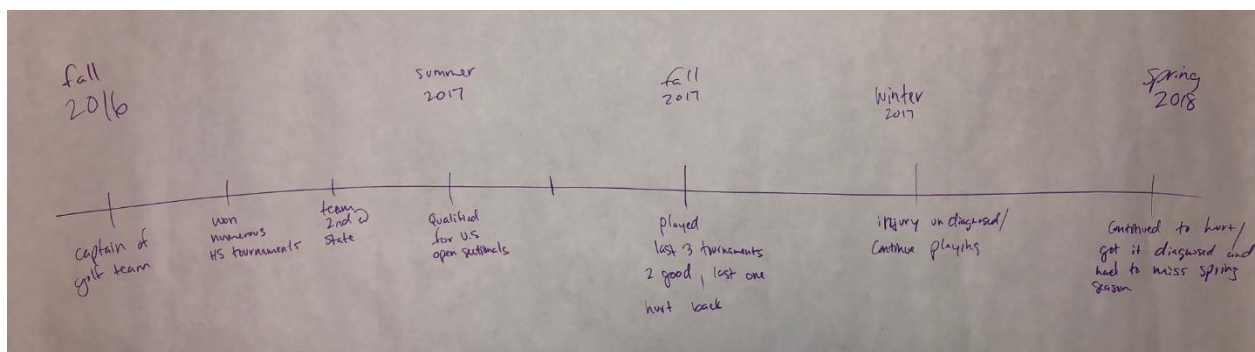 fall
2016
summer
2017
fall
2017
Winter
2017
spring
2018
captain of
golf team
won
numerous
HS tournaments
team
2nd @
State
Qualified
for U.S
open sectionals
played
last 3 tournaments
2 good, last one
hurt back
injury undiagnosed/
Continue playing
Continued to hurt/
got it diagnosed and
had to miss spring
season